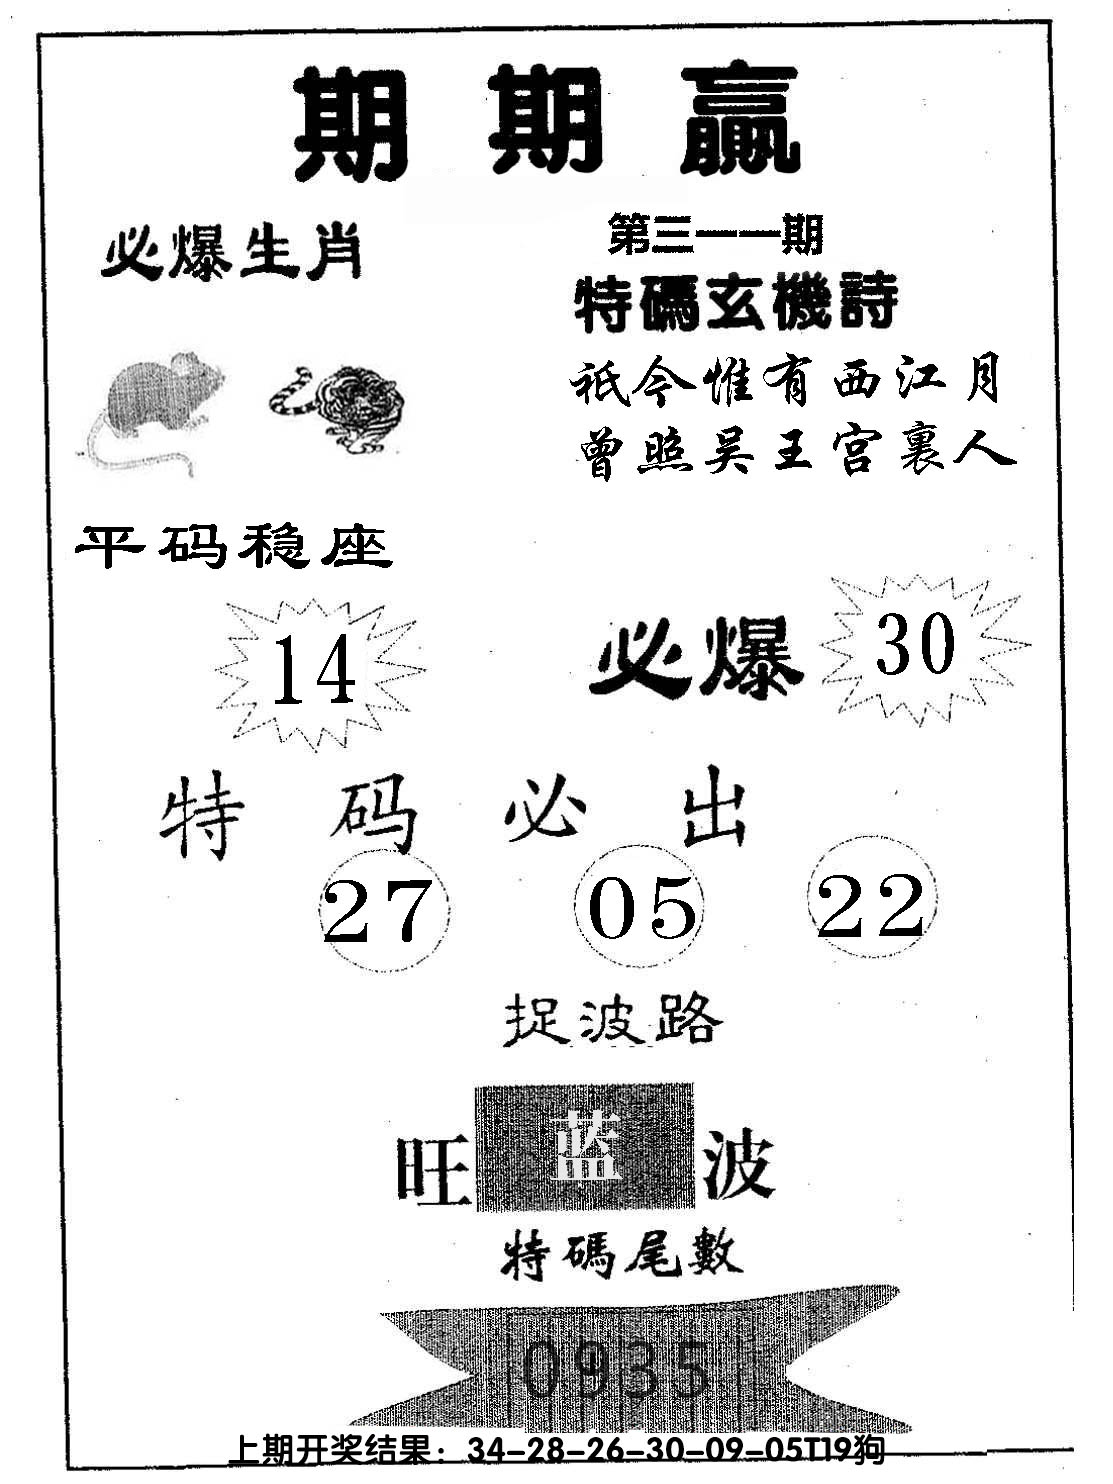 期期赢
必爆生肖
第三一一期
特碼玄機詩
祇今惟有西江月
曾照吴王宫裏人
平码稳座
14
必爆 30
特码必出
27 05 22
捉波路
旺 蓝 波
特碼尾數
0935
上期开奖结果：34-28-26-30-09-05T19狗